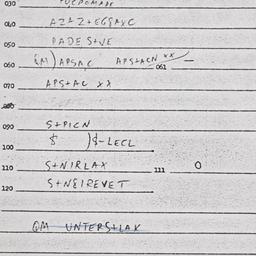 030
040 AZ+Z+EGSAXC
050 PADE S+VE
060 QM) APSAC APS+ACN xx 061 —
070 APS+AC xx
080
090 S+PICN
100 $ )$-LECL
110 S+NIRLAX 111 0
120 S+NEIREVET
QM UNTERS+LAK